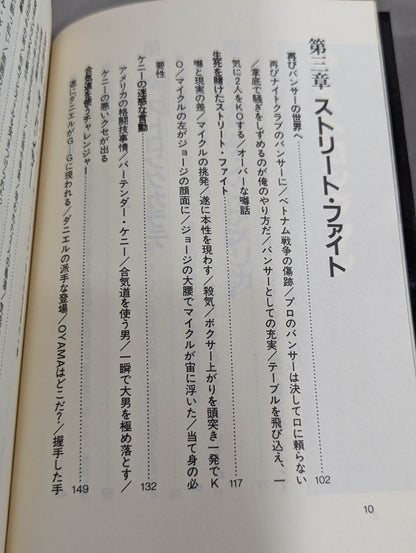 第三章 ストリート・ファイト
再びバンサーの世界へ 102
再びナイトクラブのバンサーに／ベトナム戦争の傷跡／プロのバンサーは決して口に頼らない
／掌底で騒ぎをしずめるのが俺のやり方だ／バンサーとしての充実／テーブルを飛び込え、一
気に2人をKOする／オーバーな噂話
生死を賭けたストリート・ファイト 117
噂と現実の差／マイクルの挑発／遂に本性を現わす／殺気／ボクサー上がりを頭突き一発でK
O／マイクルの左がジョージの顔面に／ジョージの大腰でマイクルが宙に浮いた／当て身の必
要性
ケニーの迷惑な言動 132
アメリカの格闘技事情／バーテンダー・ケニー／合気道を使う男／一瞬で大男を極め落とす／
ケニーの悪いクセが出る
合気道を使うチャレンジャー 149
遂にダニエルがG—Gに現われる／ダニエルの派手な登場／OYAMAはどこだ？／握手した手
10